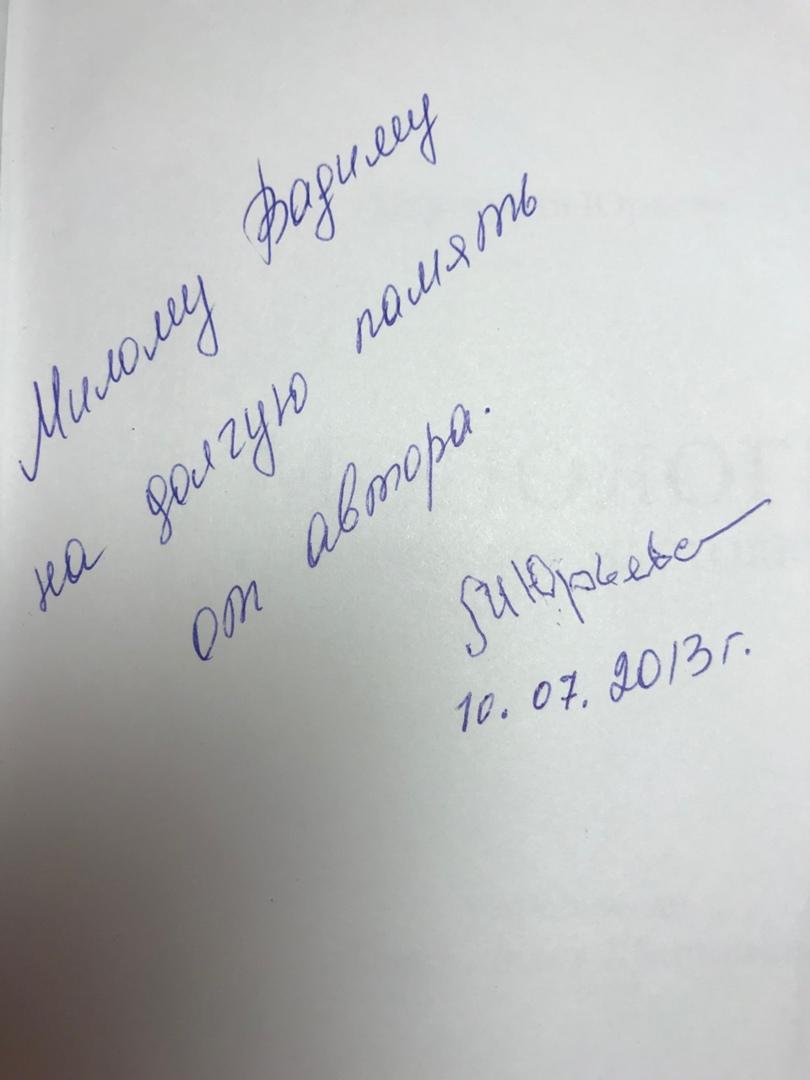 Милому Вадиму
на долгую память
от автора.
Юрьева
10.07.2013г.